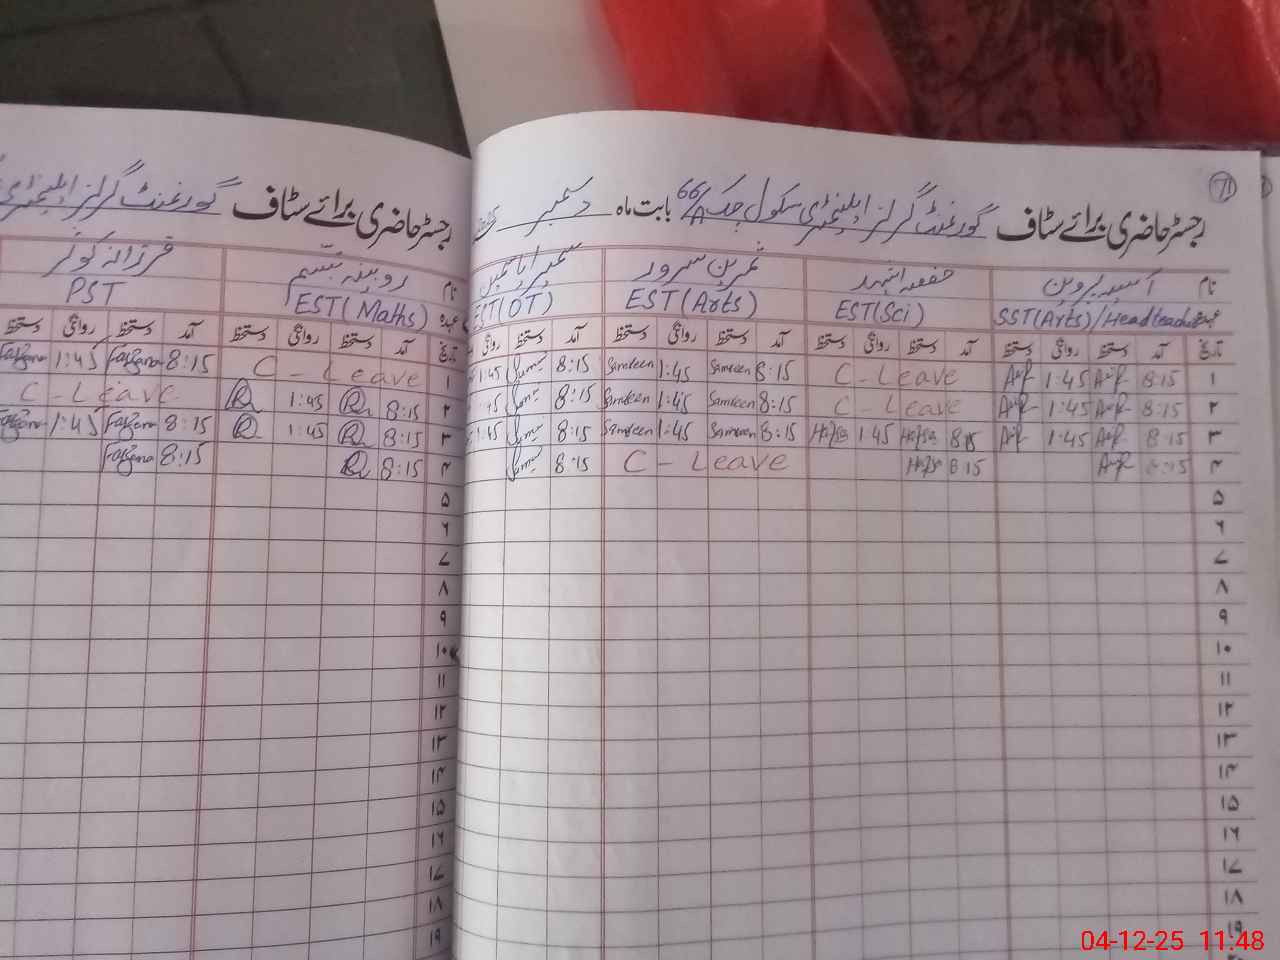 رجسٹر حاضری برائے سٹاف گورنمنٹ گرلز ایلیمنٹری سکول چک 66/A بابت ماہ دسمبر
71
نام آسیہ پروین حفصہ ثمرین سرور
عہدہ SST(Arts)/Headteacher EST(Sci) EST(Arts) EST(OT)
تاریخ آمد دستخط روانگی دستخط آمد دستخط روانگی دستخط آمد دستخط روانگی دستخط آمد دستخط روانگی
۱ 8:15 1:45 C - Leave 8:15 Samreen 1:45 Samreen 8:15 1:45
۲ 8:15 1:45 C - Leave 8:15 Samreen 1:45 Samreen 8:15 45
۳ 8:15 1:45 8:15 Hafsa 1:45 Hafsa 8:15 Samreen 1:45 Samreen 8:15 1:45
۴ 8:15 8:15 C - Leave 8:15
۵
۶
۷
۸
۹
۱۰
۱۱
۱۲
۱۳
۱۴
۱۵
۱۶
۱۷
۱۸
۱۹
رجسٹر حاضری برائے سٹاف گورنمنٹ گرلز ایلیمنٹری
نام روبینہ تبسم فرزانہ کوثر
عہدہ EST(Maths) PST
تاریخ آمد دستخط روانگی دستخط آمد دستخط روانگی دستخط
۱ C - Leave 8:15 Farzana 1:45 Farzana
۲ 8:15 1:45 C - Leave
۳ 8:15 1:45 8:15 Farzana 1:45 Farzana
۴ 8:15 8:15 Farzana
۵
۶
۷
۸
۹
۱۰
۱۱
۱۲
۱۳
۱۴
۱۵
۱۶
۱۷
۱۸
۱۹
04-12-25 11:48